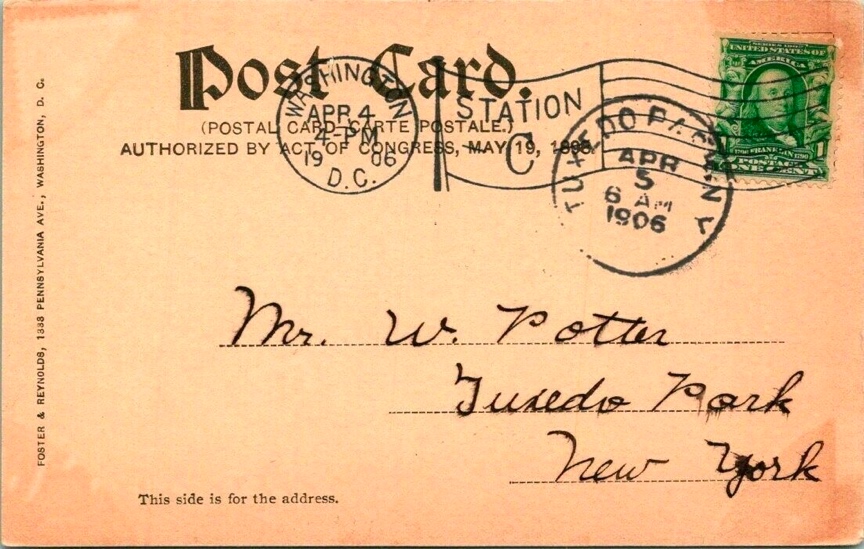 Post Card.
(POSTAL CARD—CARTE POSTALE.)
AUTHORIZED BY ACT OF CONGRESS, MAY 19, 1898.
WASHINGTON
APR 4
4-PM
19 06
D.C.
STATION
C
TUXEDO PARK N Y
APR
5
6 AM
1906
SERIES 1902
UNITED STATES OF
AMERICA
FRANKLIN
POSTAGE
ONE CENT
Mr. W. Potter
Tuxedo Park
New York
This side is for the address.
FOSTER & REYNOLDS, 1338 PENNSYLVANIA AVE., WASHINGTON, D. C.